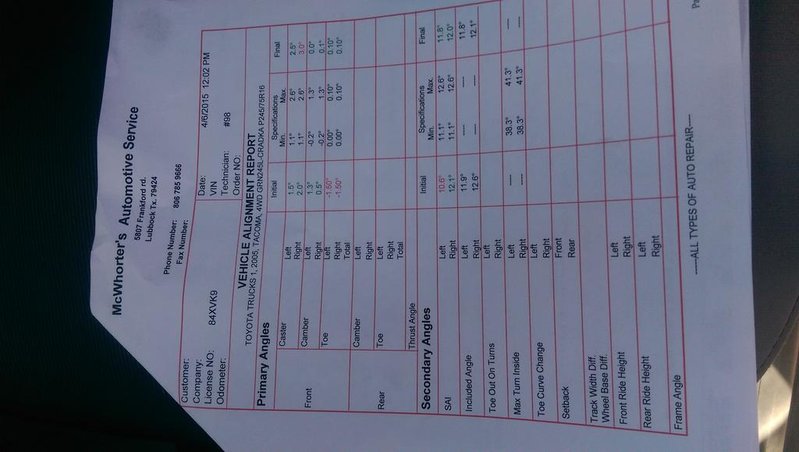 McWhorter's Automotive Service
5807 Frankford rd.
Lubbock Tx. 79424
Phone Number: 806 785 9666
Fax Number:
Customer:
Company:
License NO: 84XVK9
Odometer:
Date: 4/6/2015 12:02 PM
VIN
Technician: #98
Order NO:
VEHICLE ALIGNMENT REPORT
TOYOTA TRUCKS 1, 2005, TACOMA, 4WD GRN245L-CRADKA P245/75R16
Primary Angles Initial Specifications Min. Max. Final
Front Caster Left 1.5° 1.1° 2.6° 2.5°
Right 2.0° 1.1° 2.6° 3.0°
Camber Left 1.3° -0.2° 1.3° 0.0°
Right 0.5° -0.2° 1.3° 0.1°
Toe Left -1.50° 0.00° 0.10° 0.10°
Right -1.50° 0.00° 0.10° 0.10°
Total
Rear Camber Left
Right
Toe Left
Right
Total
Thrust Angle
Secondary Angles Initial Specifications Min. Max. Final
SAI Left 10.6° 11.1° 12.6° 11.8°
Right 12.1° 11.1° 12.6° 12.0°
Included Angle Left 11.9° ---- ---- 11.8°
Right 12.6° ---- ---- 12.1°
Toe Out On Turns Left
Right
Max Turn Inside Left ---- 38.3° 41.3° ----
Right ---- 38.3° 41.3° ----
Toe Curve Change Left
Right
Setback Front
Rear
Track Width Diff.
Wheel Base Diff.
Front Ride Height Left
Right
Rear Ride Height Left
Right
Frame Angle
----ALL TYPES OF AUTO REPAIR----